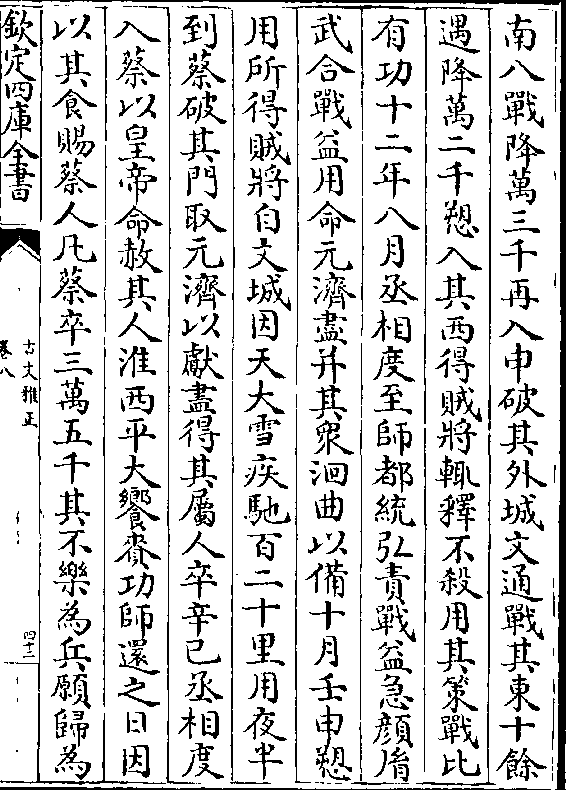 南八戰降萬三千再入申破其外城文通戰其東十餘
遇降萬二千愬入其西得賊將輒釋不殺用其策戰比
有功十二年八月丞相度至師都統弘責戰益急顔𦙍
武合戰益用命元濟盡并其衆洄曲以備十月壬申愬
用所得賊將自文城因天大雪疾馳百二十里用夜半
到蔡破其門取元濟以獻盡得其屬人卒辛巳丞相度
入蔡以皇帝命赦其人淮西平大饗賚功師還之日因
以其食賜蔡人凡蔡卒三萬五千其不樂為兵願歸為
欽定四庫全書
古文雅正
卷八
四十三